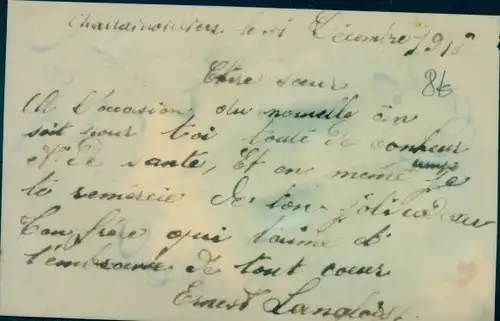 le 31 Décembre 191
8€
Chère sœur
A l'occasion du nouvelle an
soit pour toi toute de bonheur
et de santé, Et en même temps je
te remercie de ton joli cadeau
Ton frère qui t'aime et
t'embrasse de tout cœur
Ernest Langlois.